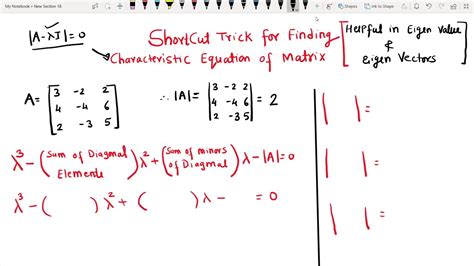 My Notebook > New Section 18
Share
|A-λI|=0
ShortCut Trick for Finding
Characteristic Equation of Matrix
[Helpful in Eigen value
&
Eigen Vectors]
A= [3 -2 2
4 -4 6
2 -3 5]
∴ |A| = |3 -2 2
4 -4 6
2 -3 5| = 2
λ³-(Sum of Diagmal Elements)λ²+(Sum of minors of Diagmal)λ-|A|=0
λ³-( )λ²+( )λ- =0
| |=
| |=
| |=